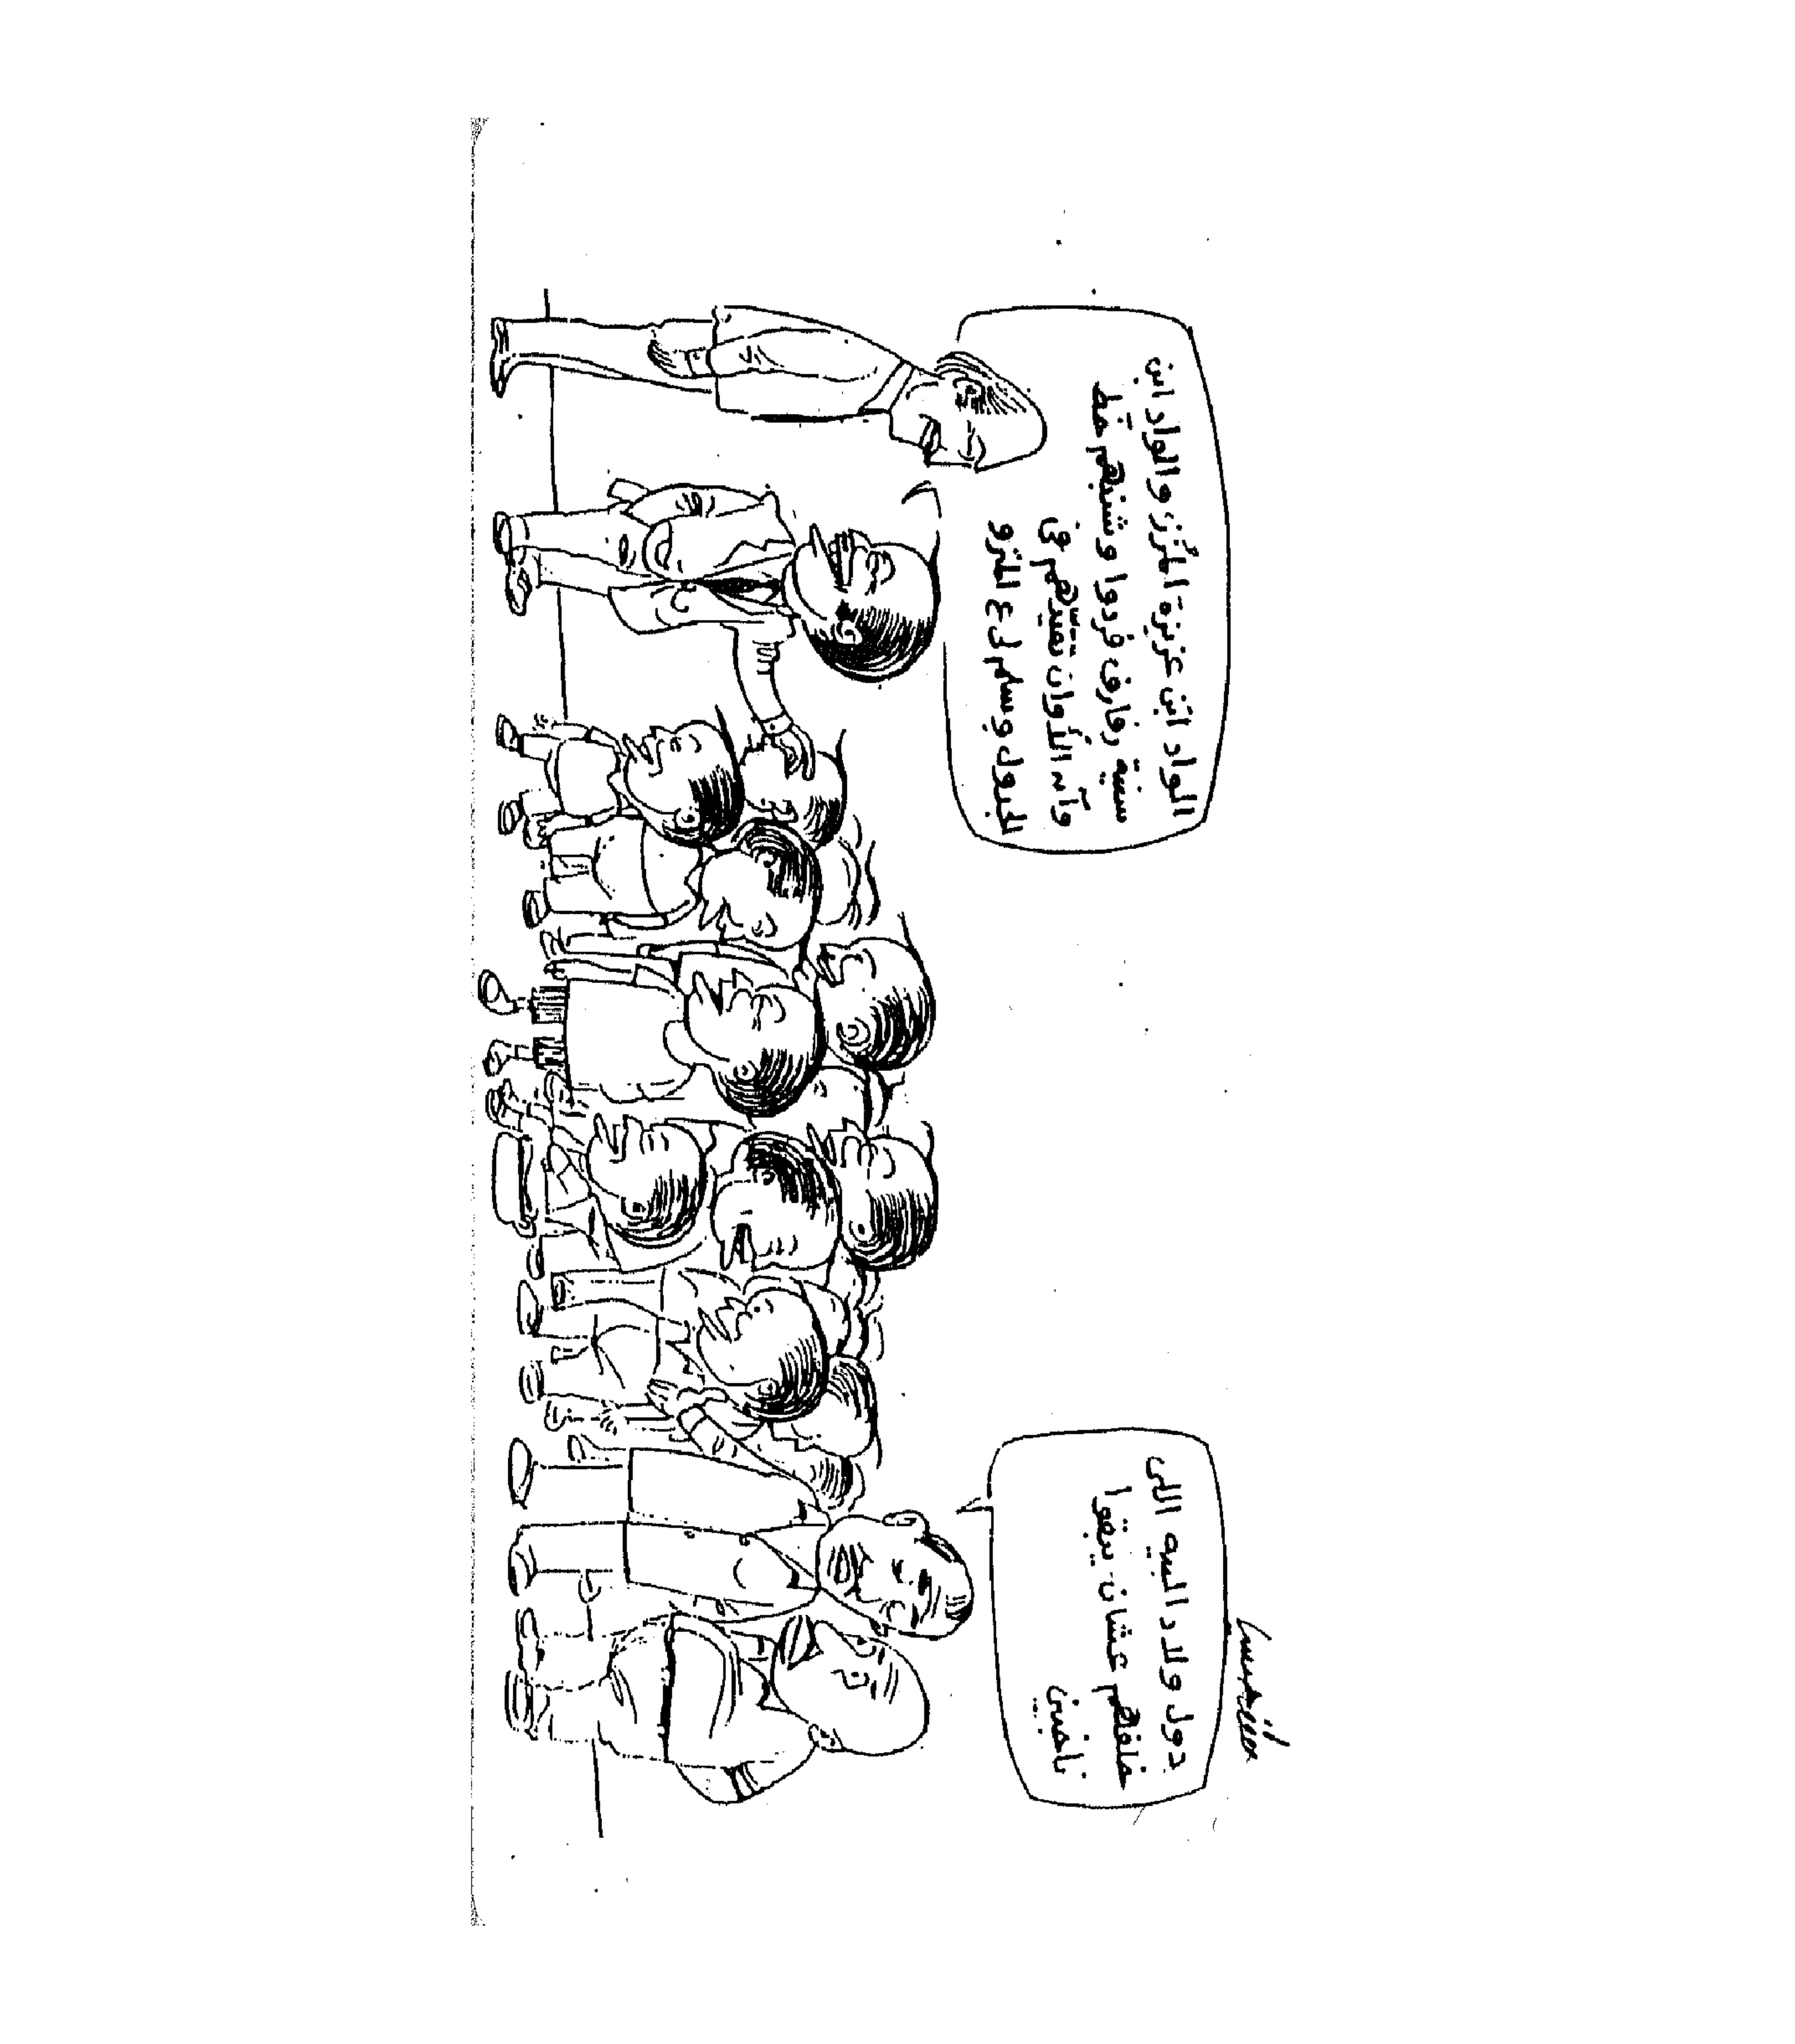 دول ولاد البيه اللى
خلفهم عشان يبقوا
ناخبين
الواد ابن عزيزة والواد ابن
سنية رفارف فردوا وشنبهم خط
وآن الأوان تقيّدهم فى
الجدول وسلم لى ع المترو